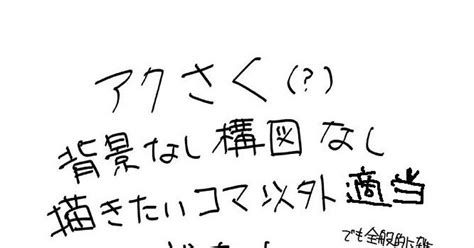 アクさく(?)
背景なし構図なし
描きたいコマ以外適当
でも全般的に雑